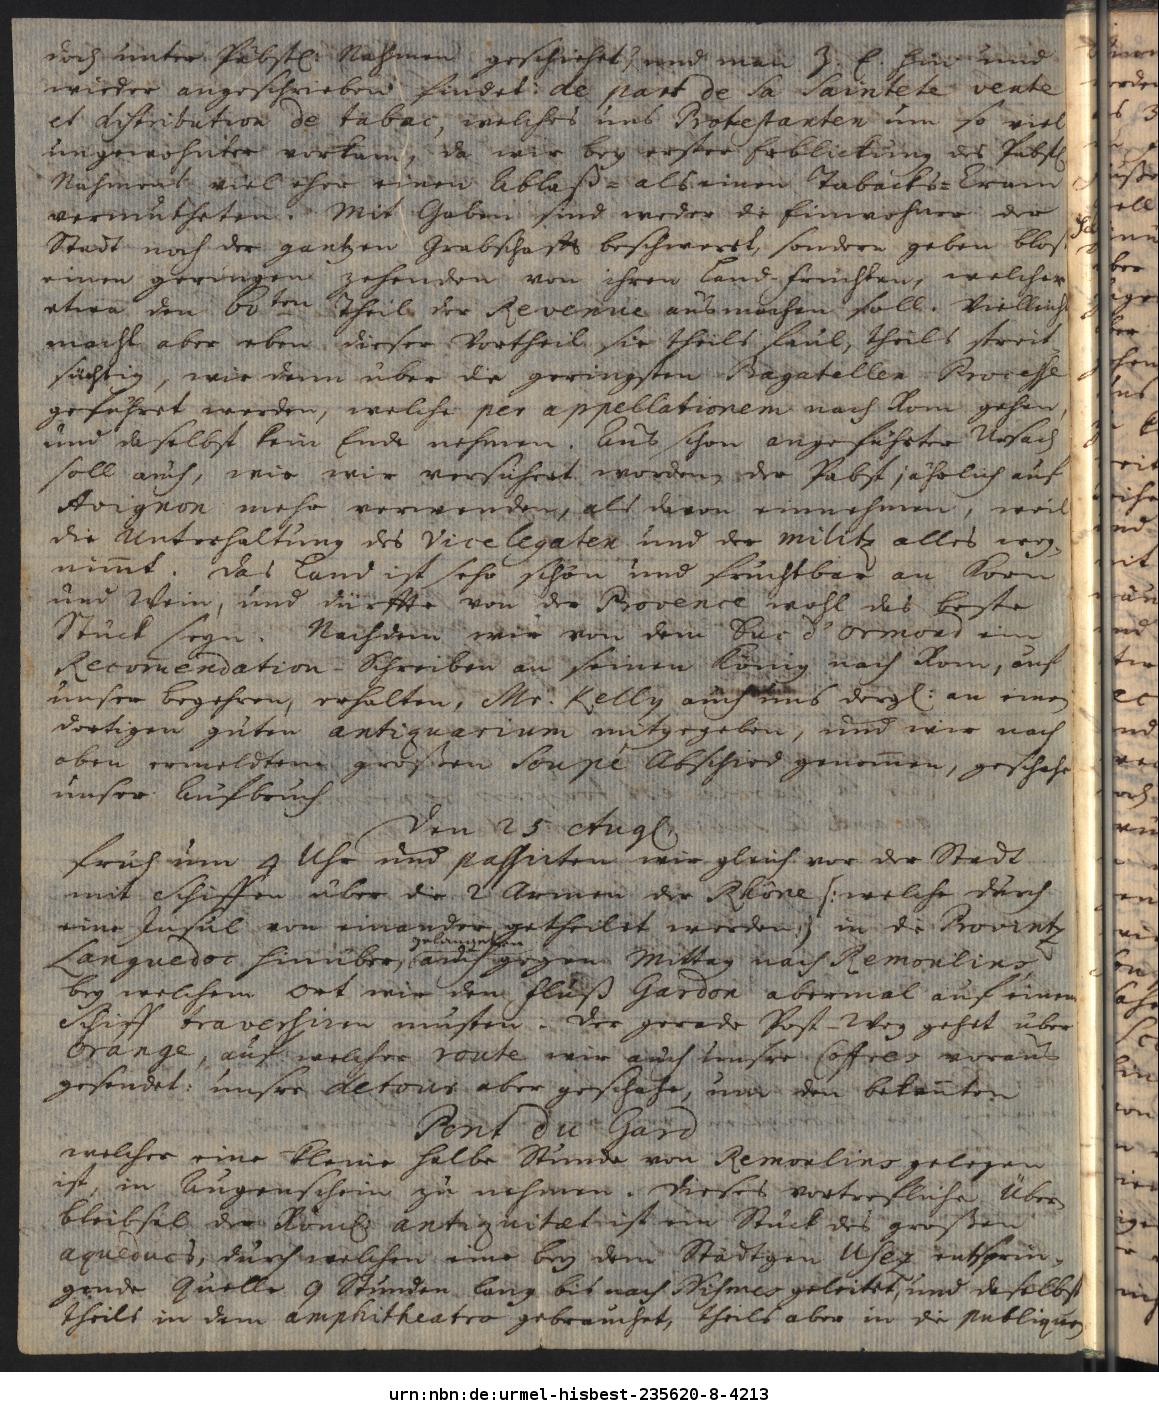 doch unter Päbstl: Nahmen geschiehet, und man z. E. hin und
wieder angeschrieben findet: de part de Sa Saintete vente
et distribution de tabac, welches uns Protestanten um so viel
ungewohnter vorkam, da wir bey erster Erblickung des Päbstl
Nahmens viel eher einen Ablaß- als einen Tabacks-Cram
vermutheten. Mit Gaben sind weder die Einwohner der
Stadt noch der gantzen Grafschafft beschwert, sondern geben blos
einen geringen zehenden von ihren Land-früchten, welcher
etwa den 60ten Theil der Revenue ausmachen soll. Vielleicht
macht aber eben dieser Vortheil sie theils faul, theils streit-
süchtig, wie denn über die geringsten Bagatellen Processe
geführet werden, welche per appellationem nach Rom gehen,
und daselbst kein Ende nehmen. Aus schon angeführter Ursach
soll auch, wie wir versichert worden, der Pabst jährlich auf
Avignon mehr verwenden, als davon einnehmen, weil
die Unterhaltung des Vicelegaten und der Militz alles weg-
nim̄t. Das Land ist sehr schön und fruchtbar an Korn
und Wein, und dürffte von der Provence wohl das beste
Stück seyn. Nachdem wir von dem Duc d'Ormond ein
Recom̄endation-Schreiben an seinen König nach Rom, auf
unser begehren, erhalten, Mr. Kelly auch uns dergl: an einen
dortigen guten antiquarium mitgegeben, und wir nach
oben ermeldtem großen Soupé Abschied genom̄en, geschahe
unser Aufbruch
Den 25 Aug.
früh um 4 Uhr und passirten wir gleich vor der Stadt
mit Schiffen über die 2 Armen der Rhône (:welche durch
eine Insul von einander getheilet werden:) in die Provintz
gelangeten
Languedoc hinüber, auch gegen Mittag nach Remoulins,
bey welchem Ort wir den Fluß Gardon abermal auf einem
Schiff traversiren musten. Der gerade Post-Weg gehet über
Orange, auf welcher route wir auch unsre Coffres voraus
gesendet: unser detour aber geschahe, um den bekan̄ten
Pont du Gard
welcher eine kleine halbe Stunde von Remoulins gelegen
ist, in Augenschein zu nehmen. Dieses vortrefliche Über-
bleibsel der Röml: antiquitæt ist ein Stück des großen
aqueducs, durch welchen eine bey dem Städtgen Usez entsprin-
gende Quelle 9 Stunden lang bis nach Nismes geleitet, und daselbst
theils in dem amphitheatro gebrauchet, theils aber in die publiquen
urn:nbn:de:urmel-hisbest-235620-8-4213